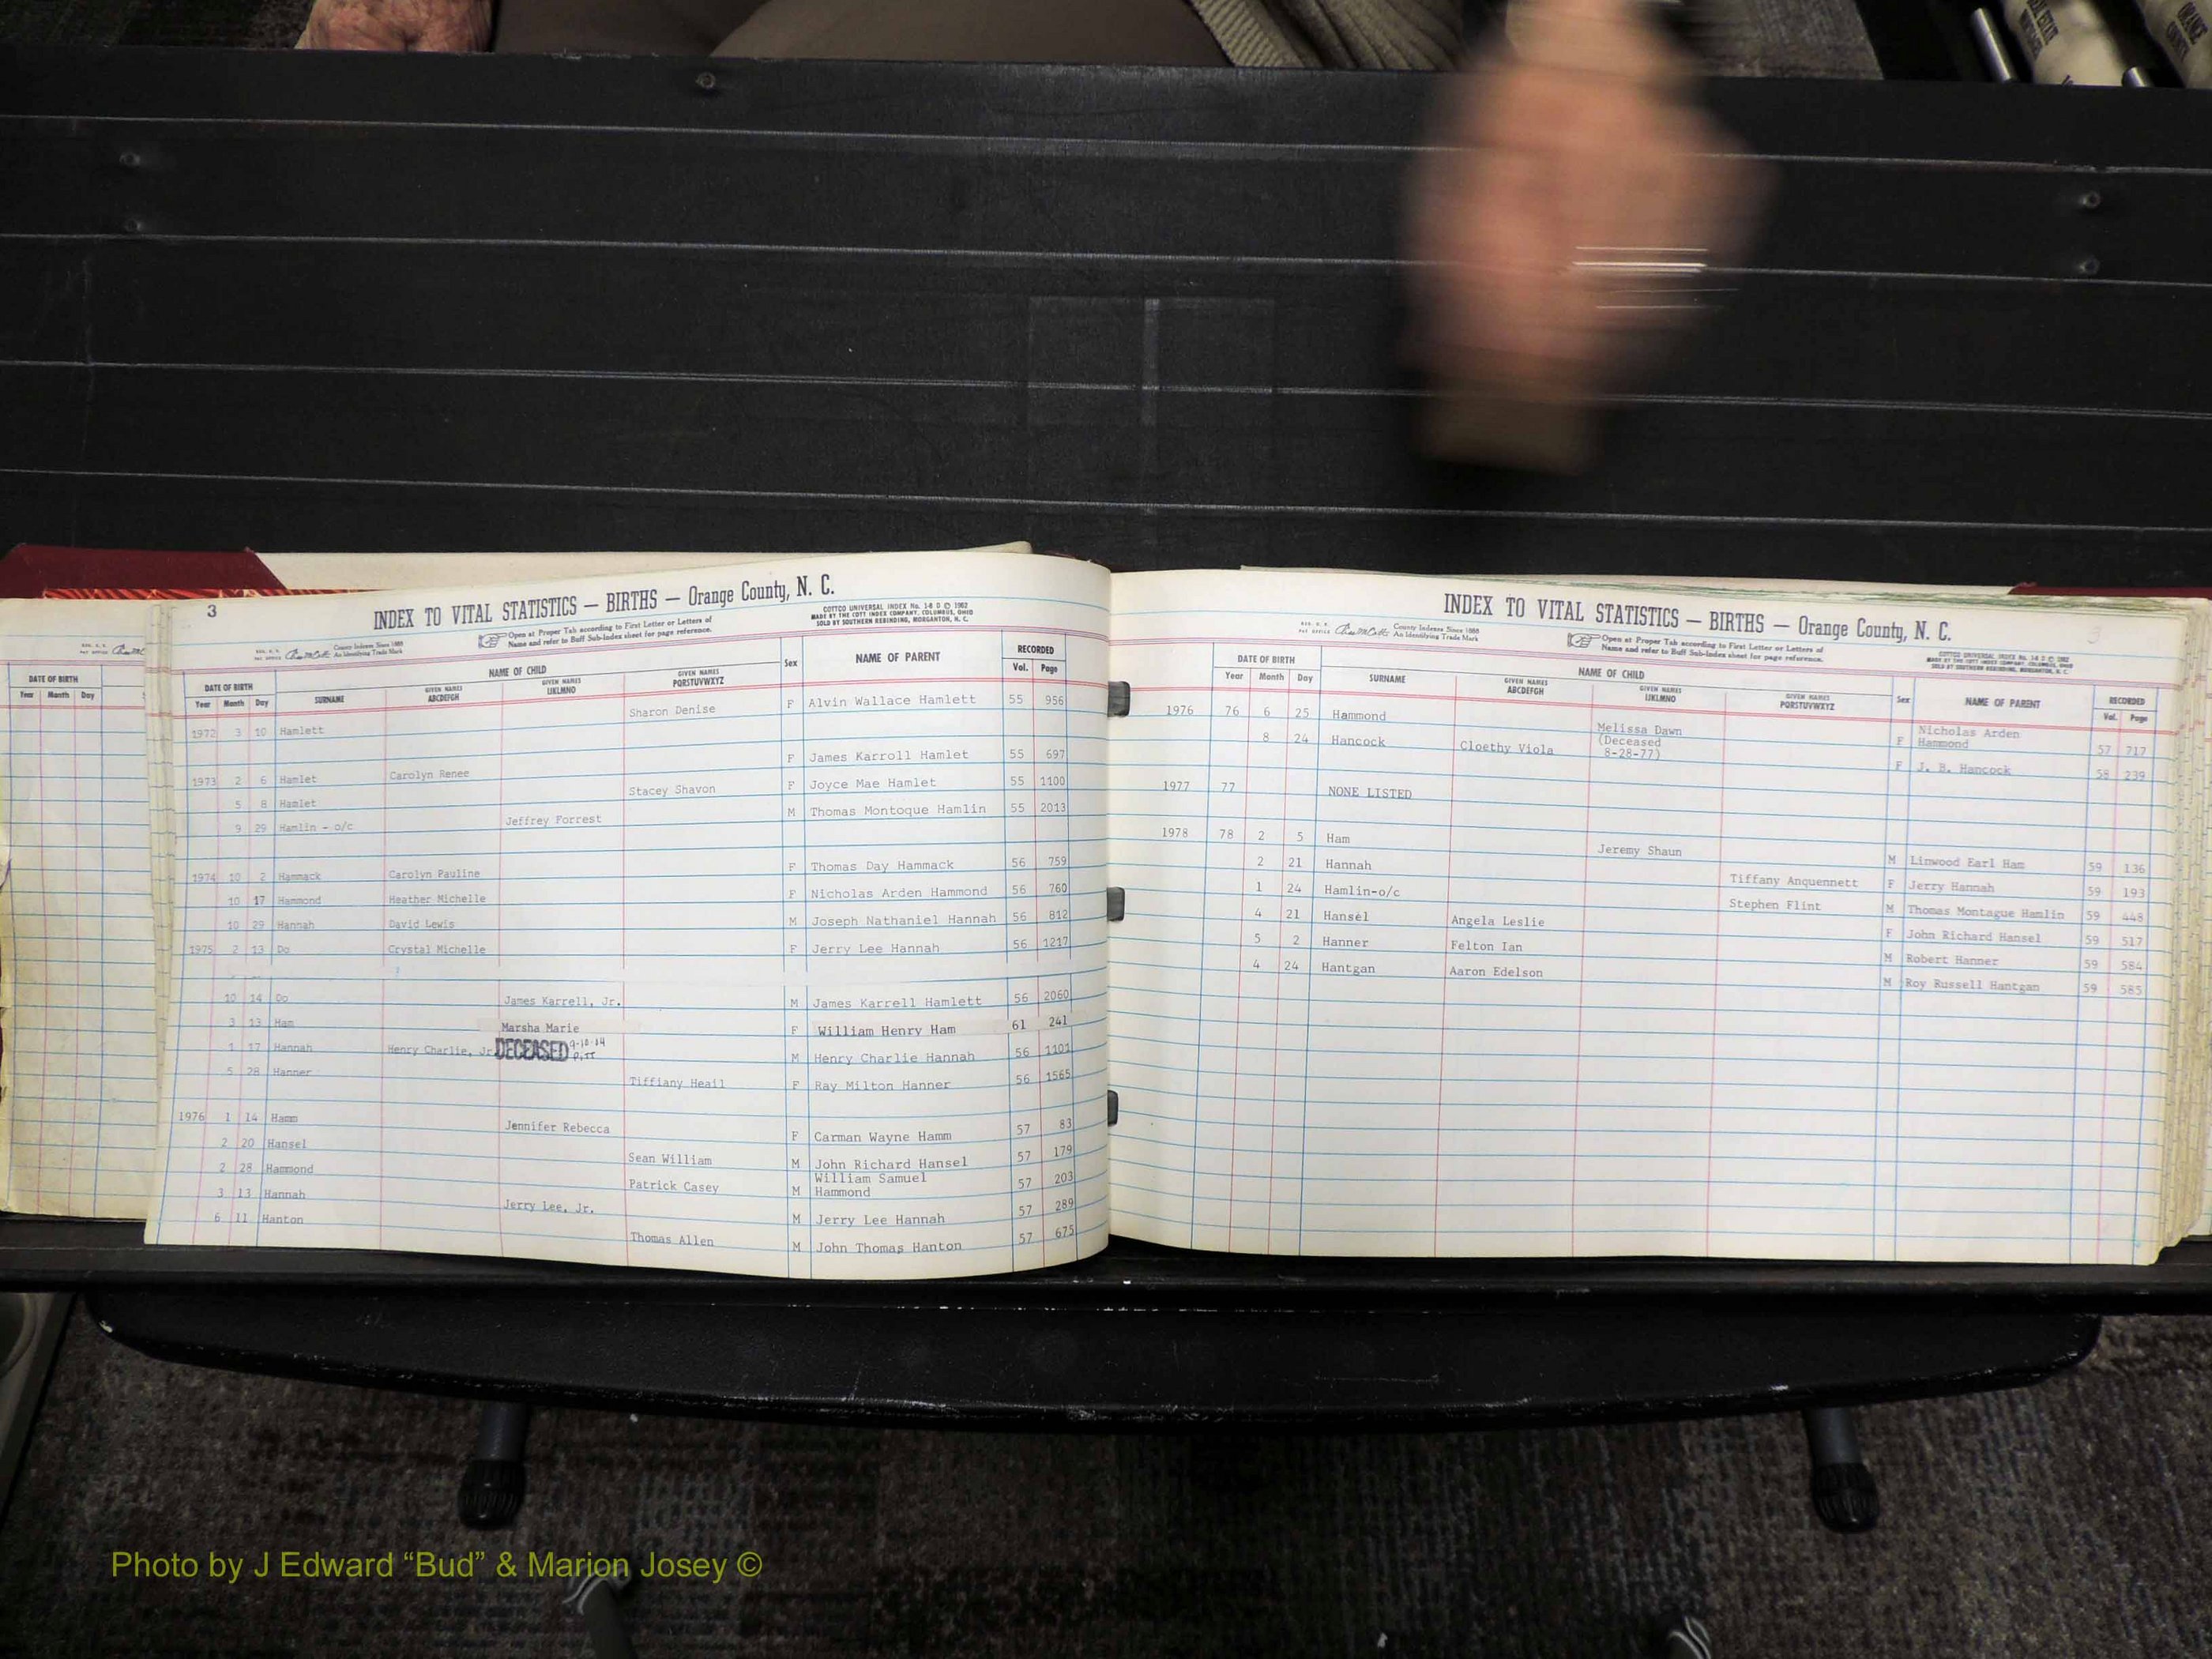 REAL ESTATE
ORANGE COUNTY
DATE OF BIRTH
Year Month Day
3
INDEX TO VITAL STATISTICS — BIRTHS — Orange County, N. C.
County Indexes Since 1888
An Identifying Trade Mark
Open at Proper Tab according to First Letter or Letters of
Name and refer to Buff Sub-Index sheet for page reference.
COTTCO UNIVERSAL INDEX No. 1-8 D © 1962
MADE BY THE COTT INDEX COMPANY, COLUMBUS, OHIO
SOLD BY SOUTHERN REBINDING, MORGANTON, N. C.
DATE OF BIRTH NAME OF CHILD Sex NAME OF PARENT RECORDED
Year Month Day SURNAME GIVEN NAMES ABCDEFGH GIVEN NAMES IJKLMNO GIVEN NAMES PQRSTUVWXYZ Vol. Page
1972 3 10 Hamlett Sharon Denise F Alvin Wallace Hamlett 55 956
1973 2 6 Hamlet Carolyn Renee F James Karroll Hamlet 55 697
5 8 Hamlet Stacey Shavon F Joyce Mae Hamlet 55 1100
9 29 Hamlin - o/c Jeffrey Forrest M Thomas Montoque Hamlin 55 2013
1974 10 2 Hammack Carolyn Pauline F Thomas Day Hammack 56 759
10 17 Hammond Heather Michelle F Nicholas Arden Hammond 56 760
10 29 Hannah David Lewis M Joseph Nathaniel Hannah 56 812
1975 2 13 Do Crystal Michelle F Jerry Lee Hannah 56 1217
10 14 Do James Karrell, Jr. M James Karrell Hamlett 56 2060
3 13 Ham Marsha Marie F William Henry Ham 61 241
1 17 Hannah Henry Charlie, Jr DECEASED 9-10-04 M Henry Charlie Hannah 56 1101
5 28 Hanner Tiffiany Heail F Ray Milton Hanner 56 1565
1976 1 14 Hamm Jennifer Rebecca F Carman Wayne Hamm 57 83
2 20 Hansel Sean William M John Richard Hansel 57 179
2 28 Hammond Patrick Casey M William Samuel Hammond 57 203
3 13 Hannah Jerry Lee, Jr. M Jerry Lee Hannah 57 289
6 11 Hanton Thomas Allen M John Thomas Hanton 57 675
INDEX TO VITAL STATISTICS — BIRTHS — Orange County, N. C.
3
County Indexes Since 1888
An Identifying Trade Mark
Open at Proper Tab according to First Letter or Letters of
Name and refer to Buff Sub-Index sheet for page reference.
COTTCO UNIVERSAL INDEX No. 1-8 D © 1962
MADE BY THE COTT INDEX COMPANY, COLUMBUS, OHIO
SOLD BY SOUTHERN REBINDING, MORGANTON, N. C.
DATE OF BIRTH NAME OF CHILD Sex NAME OF PARENT RECORDED
Year Month Day SURNAME GIVEN NAMES ABCDEFGH GIVEN NAMES IJKLMNO GIVEN NAMES PQRSTUVWXYZ Vol. Page
1976 76 6 25 Hammond Melissa Dawn (Deceased 8-28-77) F Nicholas Arden Hammond 57 717
8 24 Hancock Cloethy Viola F J. B. Hancock 58 239
1977 77 NONE LISTED
1978 78 2 5 Ham Jeremy Shaun M Linwood Earl Ham 59 136
2 21 Hannah Tiffany Anquennett F Jerry Hannah 59 193
1 24 Hamlin-o/c Stephen Flint M Thomas Montague Hamlin 59 448
4 21 Hansel Angela Leslie F John Richard Hansel 59 517
5 2 Hanner Felton Ian M Robert Hanner 59 584
4 24 Hantgan Aaron Edelson M Roy Russell Hantgan 59 585
Photo by J Edward “Bud” & Marion Josey ©